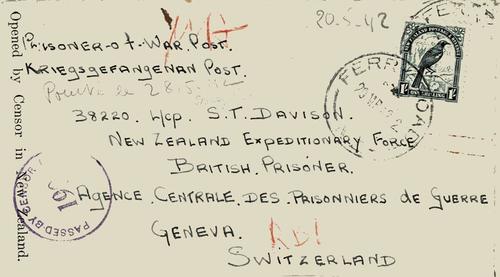 20-5-42
Prisoner-of-War Post.
Kriegsgefangenan Post.
38220. L/cp. S.T. Davison.
New Zealand Expeditionary Force
British Prisoner.
Agence Centrale des Prisonniers de Guerre
Geneva.
Switzerland
RB1
Opened by Censor in New Zealand.
PASSED BY CENSOR
NEW ZEALAND POSTAGE
1/- ONE SHILLING 1/-